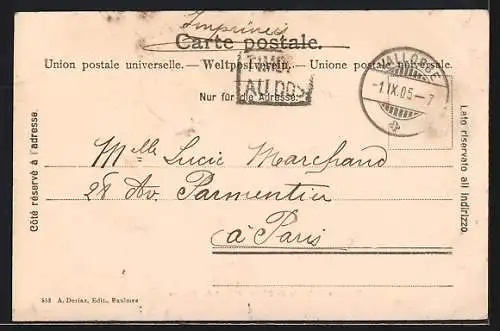 Imprimé
Carte postale.
Union postale universelle. — Weltpostverein. — Unione postale universale.
TIMB.
AU DOS
Nur für die Adresse.
VALLORBE
-1.IX.05-7
Côté réservé à l'adresse.
Lato riservato all indirizzo.
Mlle Lucie Marchand
28 Av. Parmentier
à Paris
553 A. Deriaz, Edit., Baulmes